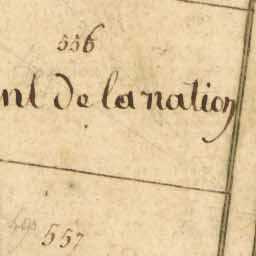 556
nt de la nation
557